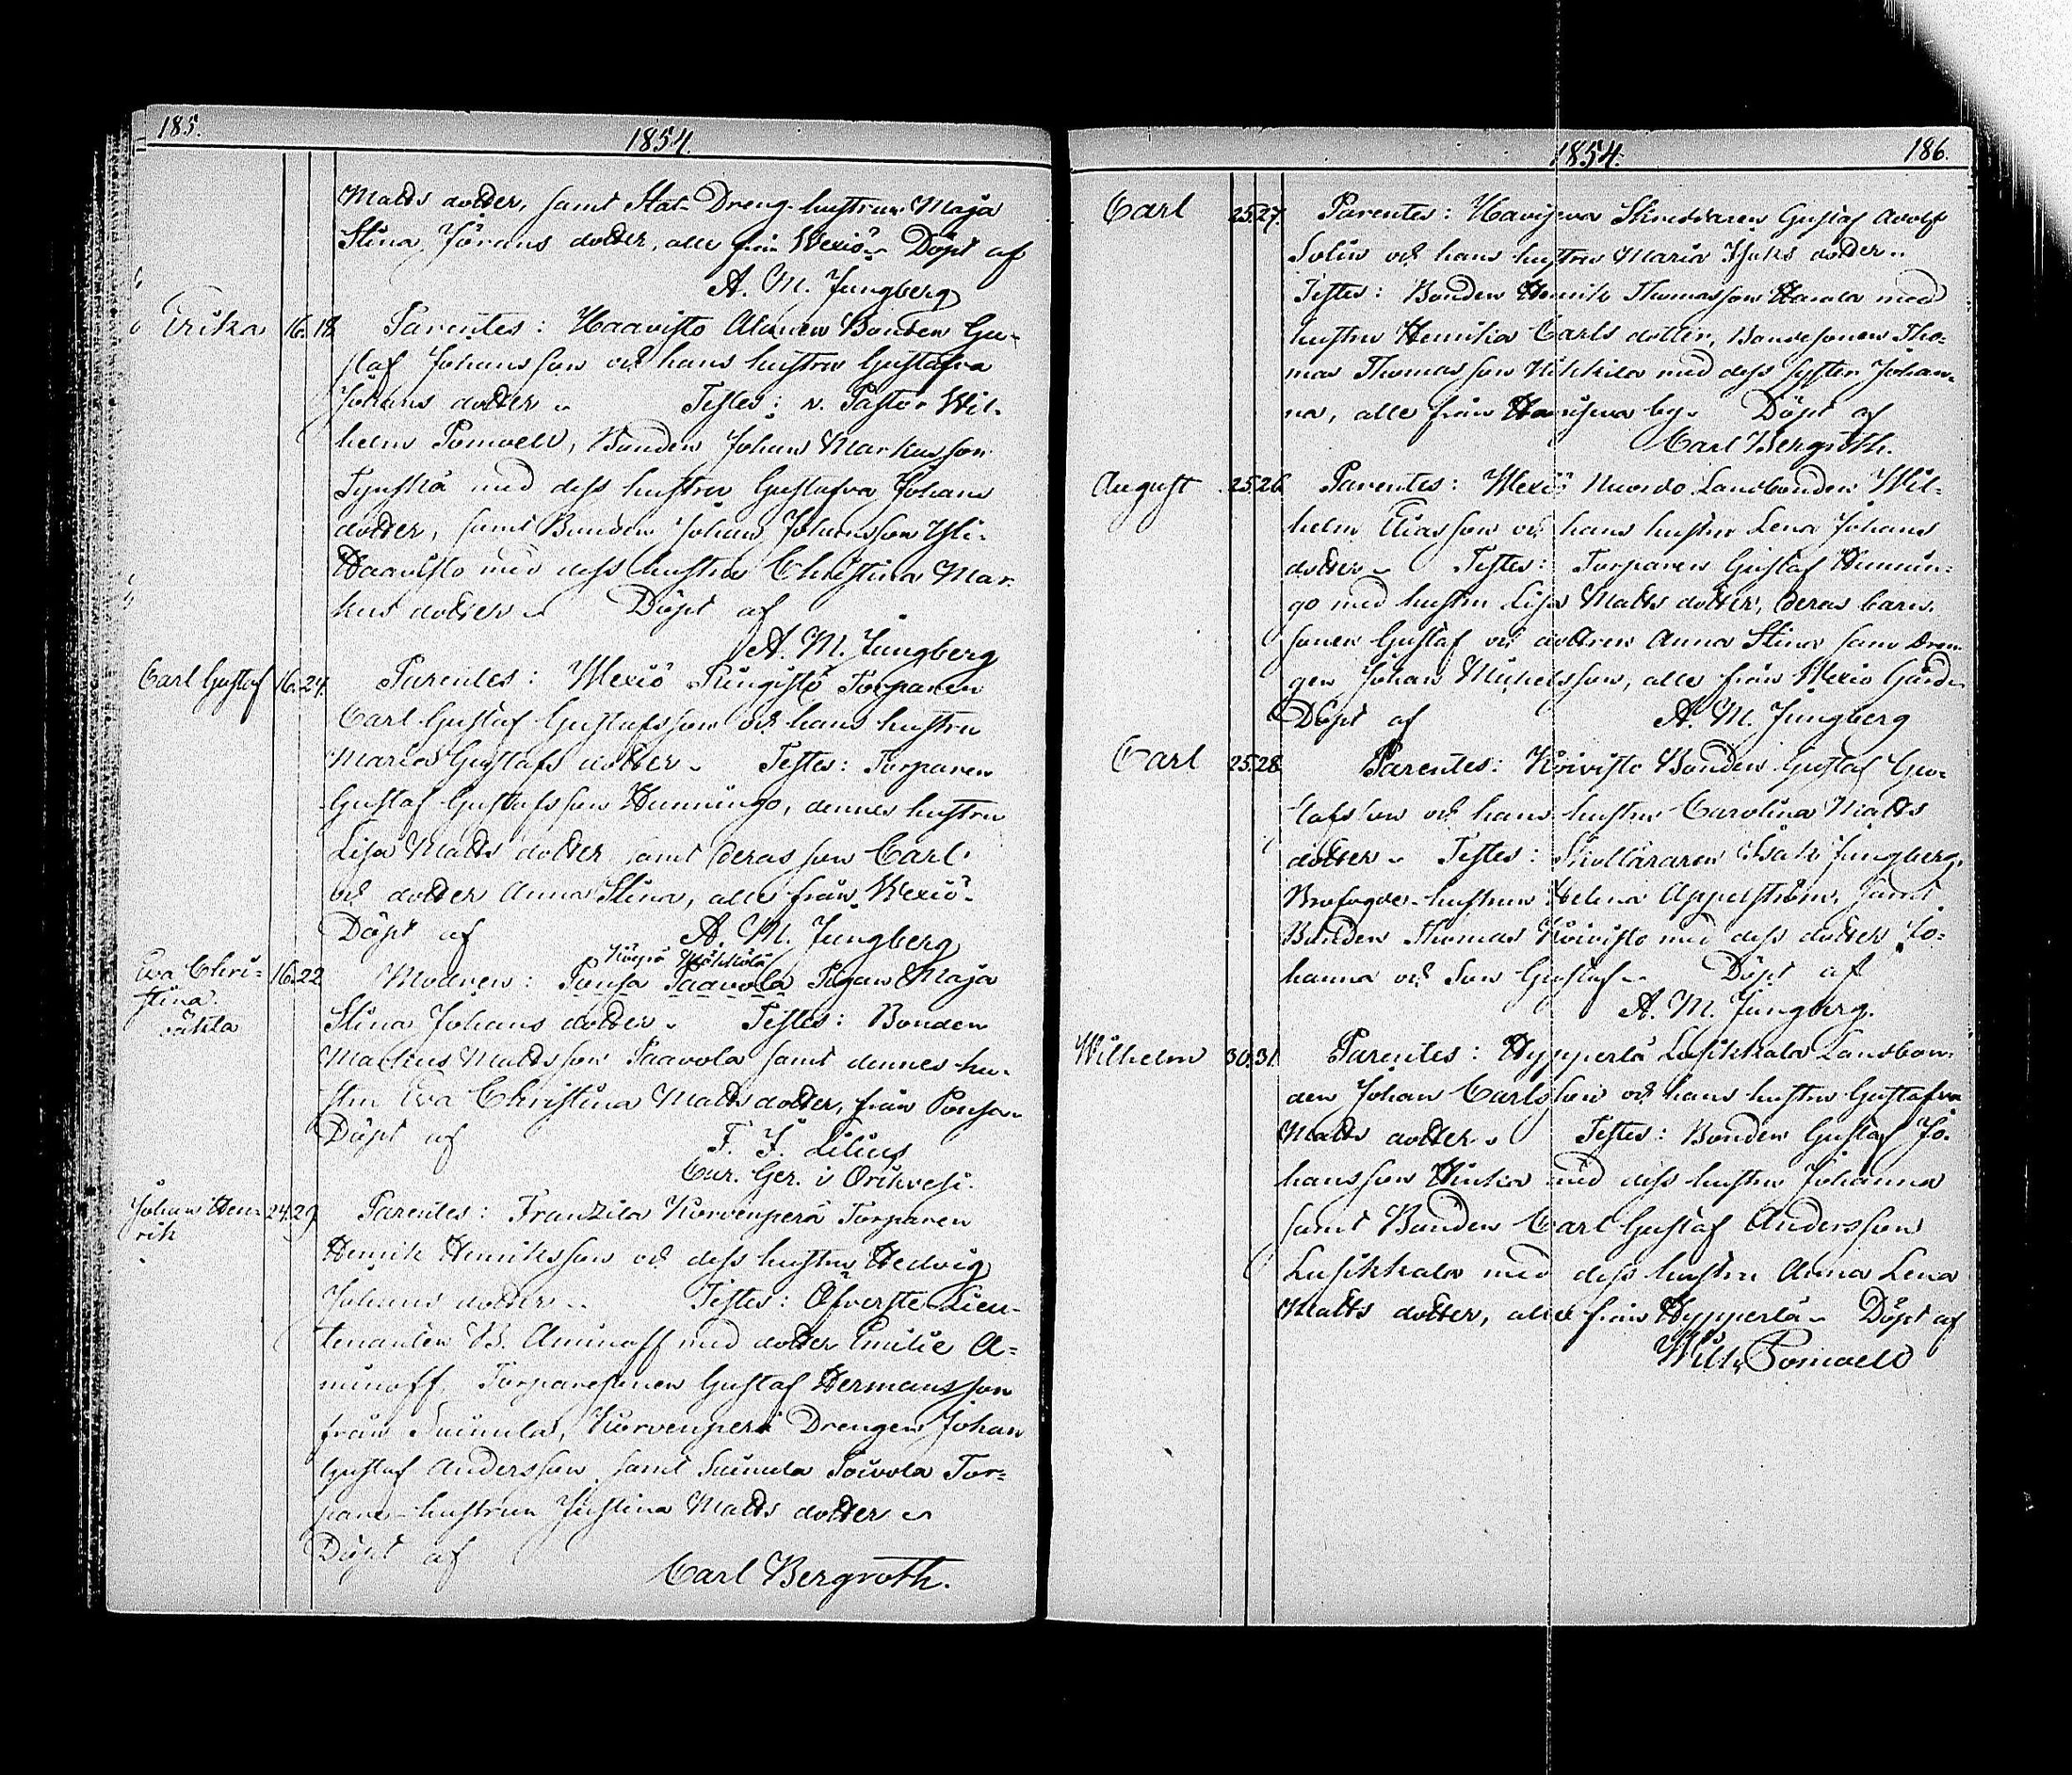 185.
1854.
Matts dotter, samt Stat-Dreng-hustrun Maja
Stina Jörans dotter, alle från Wexiö. Döpt af
A. M. Jungberg
Erika 16. 18. Parentes: Haavisto Alanen Bonden Gu-
staf Johansson och hans hustru Gustafva
Johans dotter. Testes: v. Pastor Wil-
helm Pomoell, Bonden Johan Markusson
med dess hustru Gustafva Johans
dotter, samt Bonden Johan Johansson Yli-
Haavisto med dess hustru Christina Mar-
kus dotter. Döpt af
A. M. Jungberg
Carl Gustaf 16. 24. Parentes: Wexiö Torparen
Carl Gustaf Gustafsson och hans hustru
Maria Gustafs dotter. Testes: Torparen
Gustaf Gustafsson Hunningo, dennes hustru
Lisa Matts dotter samt deras son Carl
och dotter Anna Stina, alle från Wexiö.
Döpt af A. M. Jungberg
Eva Chri- 16. 22. Modren: Ponsa Paavola Pigan Maja
stina.
Stina Johans dotter. Testes: Bonden
Markus Mattsson Paavola samt dennes hu-
stru Eva Christina Matts dotter, från Ponsa.
Döpt af F. J. Lilius
Cur. Ger. i Orihvesi.
Johan Hen- 24. 29. Parentes: Frantzila Korvenperä Torparen
rik
Henrik Henriksson och dess hustru Hedvig
Johans dotter. Testes: Öfverste Lieu-
tenanten B. Aminoff med dotter Emilie A-
minoff, Torparesonen Gustaf Hermansson
från Suinula, Korvenperä Drengen Johan
Gustaf Andersson samt Suinula Toivola Tor-
pare-hustrun Justina Matts dotter
Döpt af
Carl Bergroth.
1854.
186.
Carl 25. 27. Parentes: Haviseva Skräddaren Gustaf Adolf
Solin och hans hustru Maria Isaks dotter.
Testes: Bonden Henrik Thomasson Harala med
hustru Henrika Carls dotter, Bondesonen Tho-
mas Thomasson Kikkila med dess syster Johan-
na, alle från Havisева by. Döpt af
Carl Bergroth.
August 25. 26. Parentes: Wexiö Landbonden Wil-
helm Eliasson och hans hustru Lena Johans
dotter. Testes: Torparen Gustaf Hunnin-
go med hustru Lisa Matts dotter, deras barn
sonen Gustaf och dottren Anna Stina samt Dren-
gen Johan Michelsson, alle från Wexiö Gård.
Döpt af A. M. Jungberg
Carl 25. 28. Parentes: Koivisto Bonden Gustaf Gu-
stafsson och hans hustru Carolina Matts
dotter. Testes: Skolläraren Isak Jungberg,
Brofogde-hustrun Helena Appelström, samt
Bonden Thomas Koivisto med dess dotter Jo-
hanna och Son Gustaf. Döpt af
A. M. Jungberg.
Wilhelm 30. 31. Parentes: Hypperlä Lusikkala Landbon-
den Johan Carlsson och hans hustru Gustafva
Matts dotter. Testes: Bonden Gustaf Jo-
hansson med dess hustru Johanna
samt Bonden Carl Gustaf Andersson
Lusikkala med dess hustru Anna Lena
Matts dotter, alle från Hypperlä. Döpt af
Wilh. Pomoell